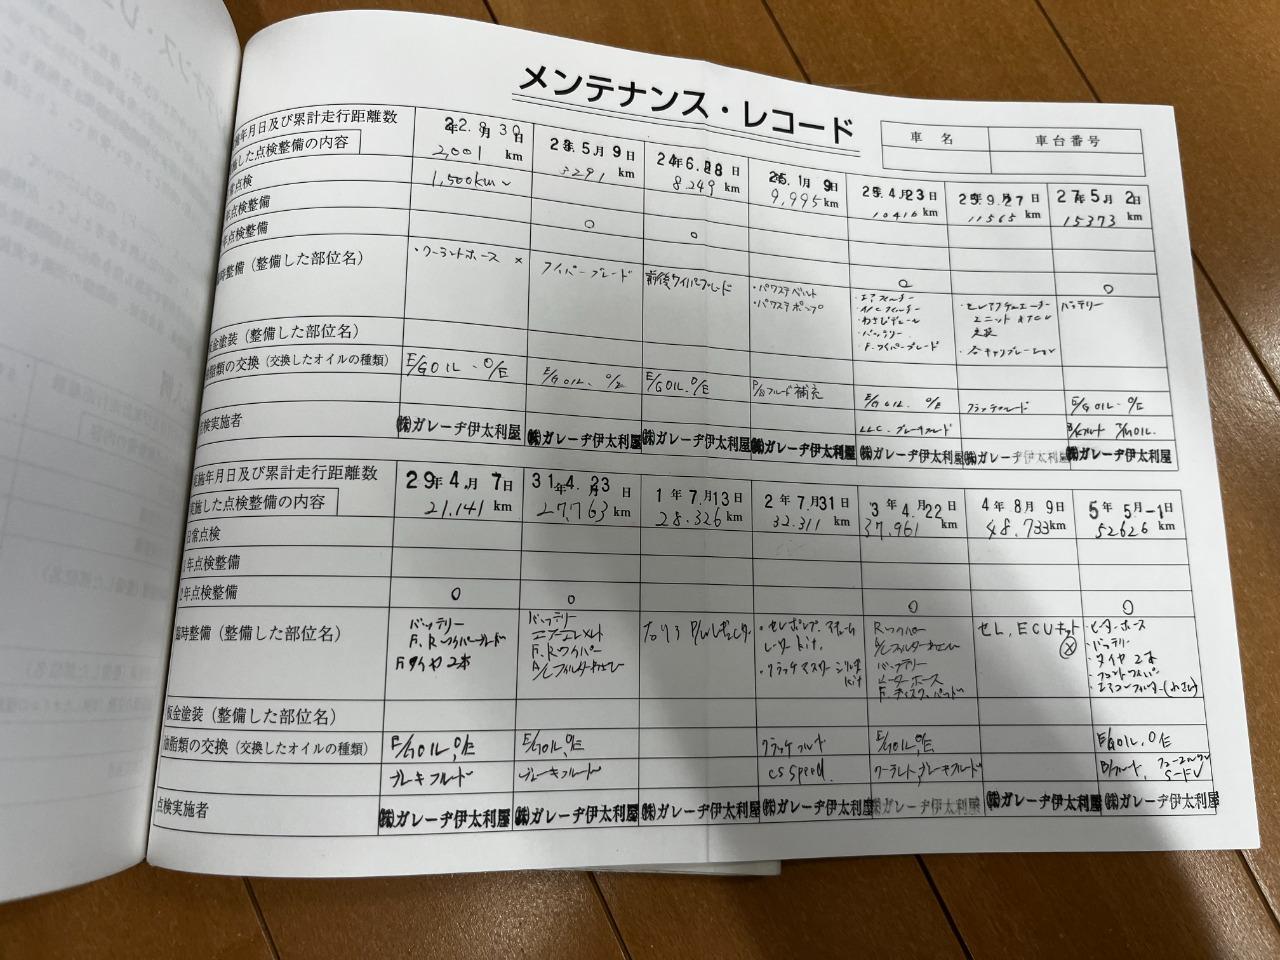 メンテナンス・レコード
車名 車台番号
年月日及び累計走行距離数
22. 9月30日 23. 5月9日 24年6.28日 25.1月9日 25.4月23日 25年9.27日 27年5月2日
2,001 km 5291 km 8.249 km 9,995 km 10416 km 11565 km 15373 km
した点検整備の内容
常点検 1,500km〜
年点検整備
年点検整備
臨時整備（整備した部位名）
・クーラントホース ×
ワイパーブレード
前後ワイパブレード
・パワステベルト
・パワステポンプ
・エアフィルター
・A/Cフィルター
・わさびデェール
・バッテリー
・F.ワイパーブレード
・セレアクチュエーター
ユニット
交換
・各キャリブレーション
バッテリー
金塗装（整備した部位名）
脂類の交換（交換したオイルの種類）
E/GOIL . O/E E/GOIL . O/E E/GOIL . O/E P/Sフルード補充 E/GOIL . O/E クラッチフルード E/GOIL . O/E
LLC. ブレーキフルード
点検実施者
㈱ガレーヂ伊太利屋 ㈱ガレーヂ伊太利屋 ㈱ガレーヂ伊太利屋 ㈱ガレーヂ伊太利屋 ㈱ガレーヂ伊太利屋 ㈱ガレーヂ伊太利屋 ㈱ガレーヂ伊太利屋
実施年月日及び累計走行距離数
29年4.月7日 31年4.月23日 1年7月13日 2年7.月31日 3年4.月22日 4年8月9日 5年5月-1日
21.141 km 27,763 km 28.326 km 32.311 km 37,961 km 48.733 km 52626 km
実施した点検整備の内容
日常点検
1年点検整備
2年点検整備
臨時整備（整備した部位名）
バッテリー
F.Rワイパーブレード
F.タイヤ2本
バッテリー
エアーエレメント
F.Rワイパー
A/Cフィルターわさび
P/Wレギュレター
・セレポンプ.
kit.
・クラッチマスターシリンダ
kit
Rワイパー
A/Cフィルターわさび
バッテリー
ヒーターホース
F.ディスク.パッド
セレ,ECUキット
・ヒーターホース
・バッテリー
・タイヤ2本
・フロントワイパ
・エアコンフィルター(わさび)
板金塗装（整備した部位名）
油脂類の交換（交換したオイルの種類）
E/GOIL, O/E E/GOIL, O/E クラッチフルード E/GOIL, O/E E/GOIL, O/E
ブレーキフルード ブレーキフルード CS Speed. クーラント,ブレーキフルード B/フルード,
点検実施者
㈱ガレーヂ伊太利屋 ㈱ガレーヂ伊太利屋 ㈱ガレーヂ伊太利屋 ㈱ガレーヂ伊太利屋 ㈱ガレーヂ伊太利屋 ㈱ガレーヂ伊太利屋 ㈱ガレーヂ伊太利屋